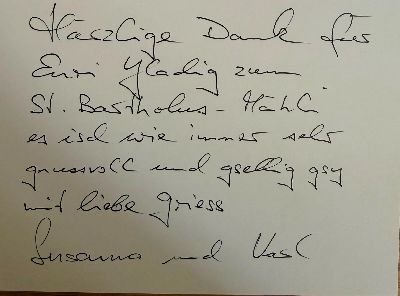 Härzlige Dank für
Euri Yladig zum
St. Bartholus-Mähli
es isch wie immer sehr
gnussvoll und gsellig gsy
mit liebe Griess
Susanna und Karl